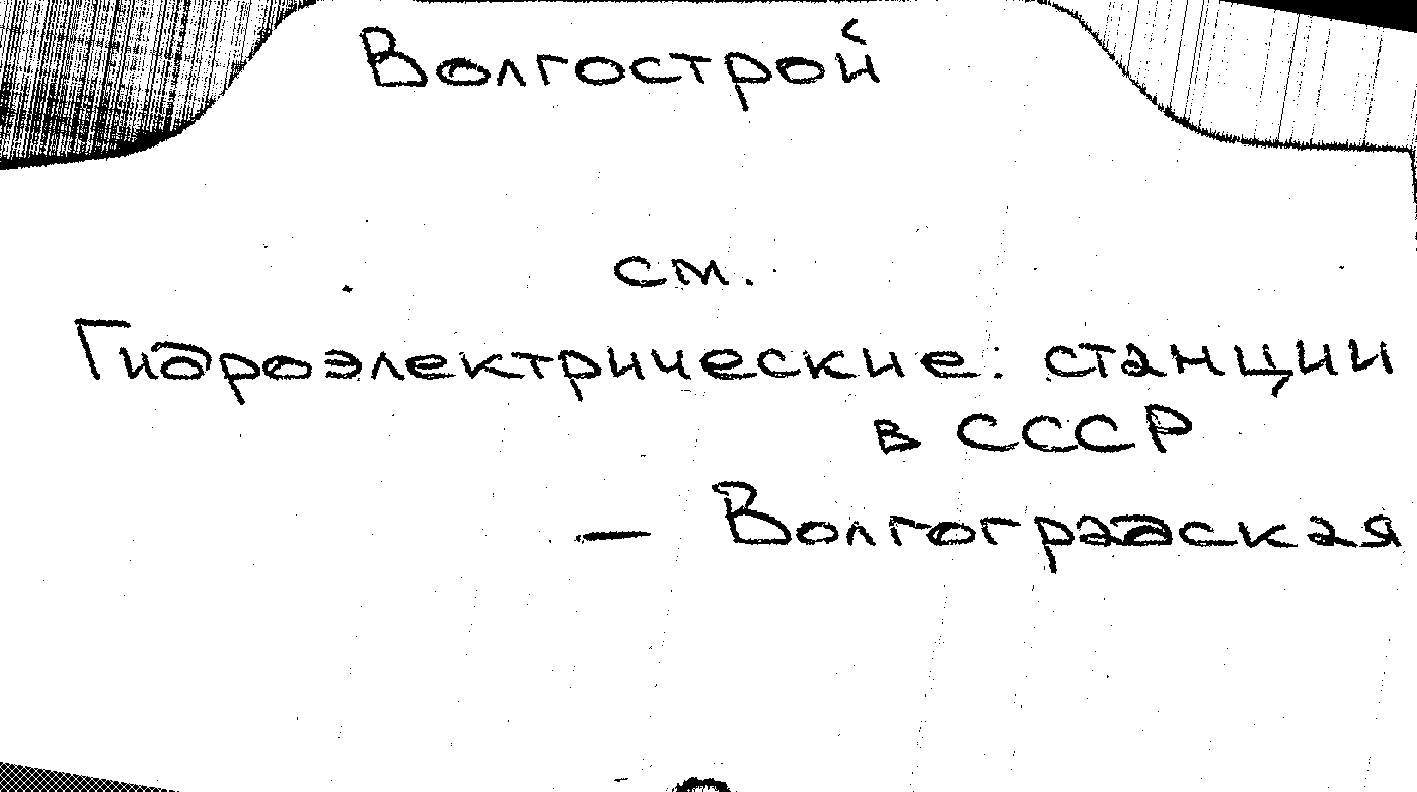 Волгострой
см.
Гидроэлектрические станции
в СССР
— Волгоградская